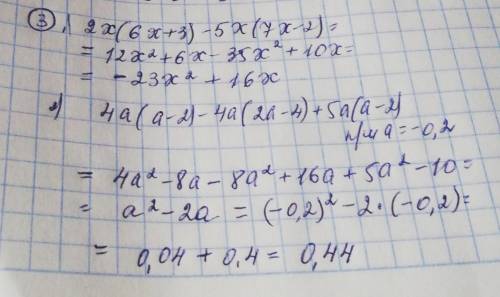 ③, 2x(6x+3)-5x(7x-2)=
= 12x²+6x-35x²+10x=
= -23x²+16x
2) 4a(a-2)-4a(2a-4)+5a(a-2)
при a=-0,2
= 4a²-8a-8a²+16a+5a²-10=
= a²-2a = (-0,2)²-2·(-0,2)=
= 0,04+0,4= 0,44